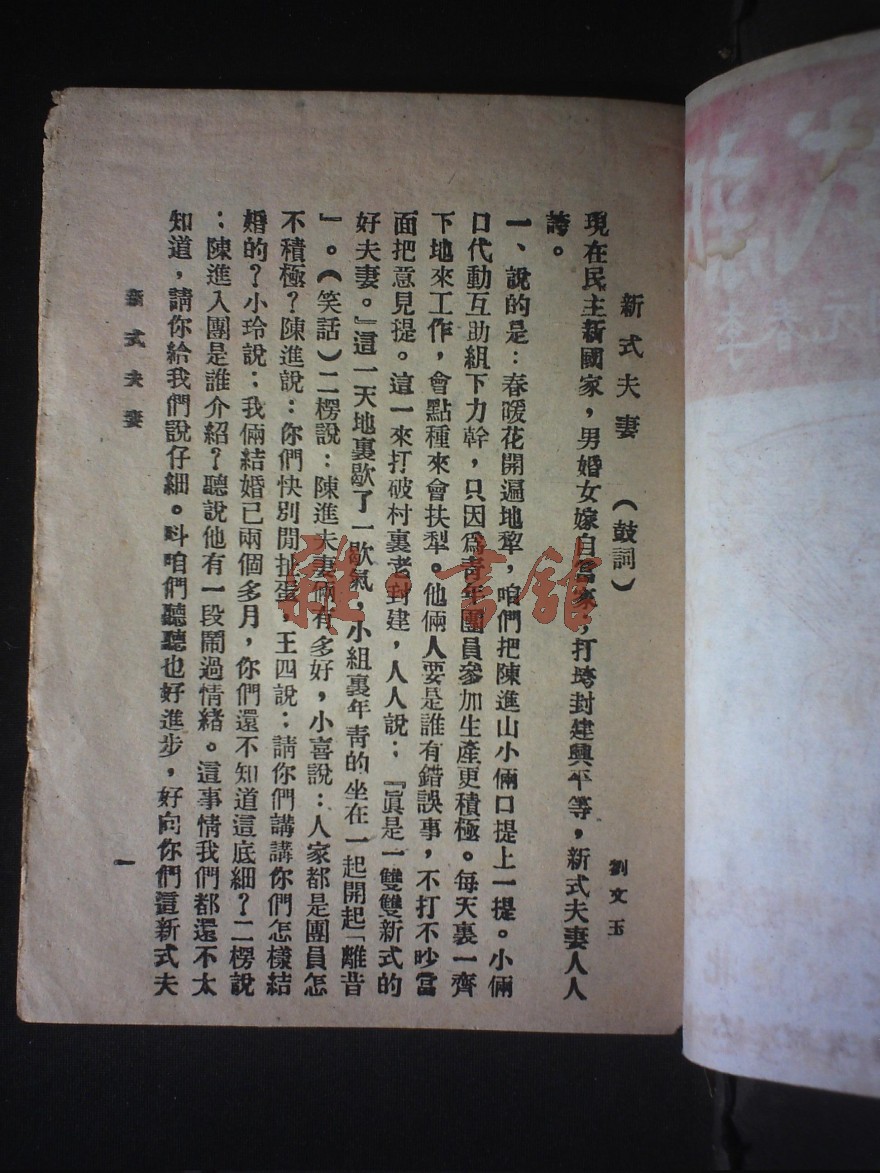 新式夫妻 （鼓詞）
劉文玉
現在民主新國家，男婚女嫁自當家，打垮封建興平等，新式夫妻人人
誇。
一、說的是：春暖花開遍地犂，咱們把陳進山小倆口提上一提。小倆
口代動互助組下力幹，只因爲青年團員參加生產更積極。每天裏一齊
下地來工作，會點種來會扶犁。他倆人要是誰有錯誤事，不打不吵當
面把意見提。這一來打破村裏老封建，人人說；『眞是一雙雙新式的
好夫妻。』這一天地裏歇了一歇氣，小組裏年靑的坐在一起開起「離昔
』。（笑話）二楞說：陳進夫妻倆有多好，小喜說：人家都是團員怎
不積極？陳進說：你們快別閒扯蛋，王四說：請你們講講你們怎樣結
婚的？小玲說；我倆結婚已兩個多月，你們還不知道這底細？二楞說
：陳進入團是誰介紹？聽說他有一段鬧過情緒。這事情我們都還不太
知道，請你給我們說仔細。叫咱們聽聽也好進步，好向你們這新式夫
新式夫妻
一
雜·書舘